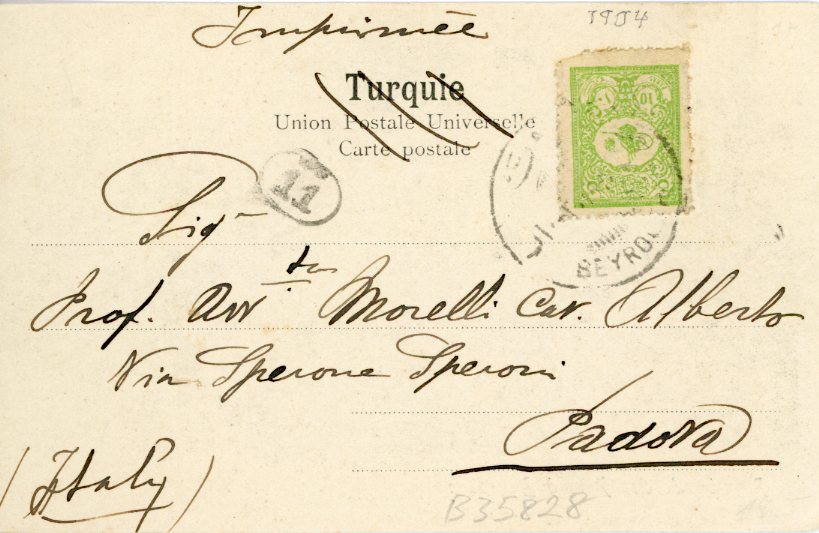 Imprimée
1904
Turquie
Union Postale Universelle
Carte postale
11
10
BEYROU
Sig
Prof. Avv to Morelli Cav. Alberto
Via Sperone Speroni
Padova
(Italy)
B35828